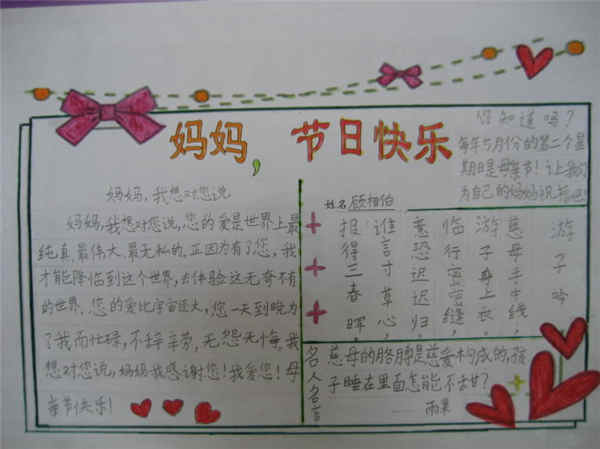 妈妈,节日快乐
您知道吗?
每年5月份的第二个星
期日是母亲节!让我们
为自己的妈妈祝福吧!
妈妈,我想对您说
妈妈,我想对您说,您的爱是世界上最
纯真、最伟大、最无私的。正因为有了您,我
才能降临到这个世界,去体验这无奇不有
的世界。您的爱比宇宙还大,您一天到晚为
了我而忙碌,不辞辛劳,无怨无悔,我
想对您说,妈妈我感谢您!我爱您!母
亲节快乐!
姓名 顾相伯
游子吟
慈母手中线,
游子身上衣。
临行密密缝,
意恐迟迟归。
谁言寸草心,
报得三春晖。
名人名言
慈母的胳膊是慈爱构成的,孩
子睡在里面怎能不舌甘?
——雨果